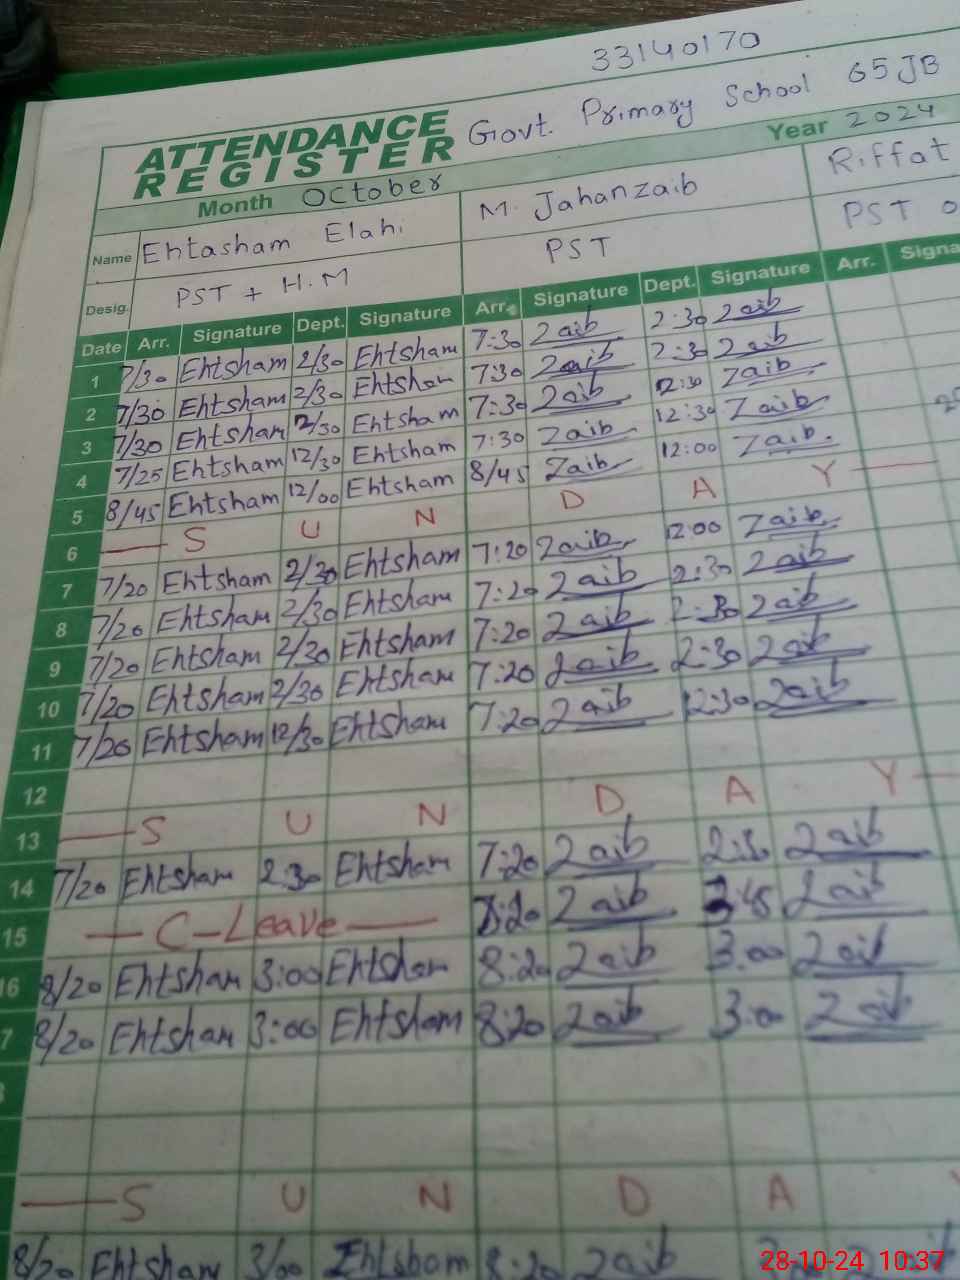 33140170
ATTENDANCE REGISTER Govt. Primary School 65 JB
Month October Year 2024
Name Ehtasham Elahi M. Jahanzaib Riffat
Desig. PST + H.M PST PST
Date Arr. Signature Dept. Signature Arr. Signature Dept. Signature Arr. Signa
1 7/30 Ehtsham 2/30 Ehtsham 7:30 Zaib 2:30 Zaib
2 7/30 Ehtsham 2/30 Ehtsham 7:30 Zaib 2:30 Zaib
3 7/30 Ehtsham 2/30 Ehtsham 7:30 Zaib 12:30 Zaib
4 7/25 Ehtsham 12/30 Ehtsham 7:30 Zaib 12:30 Zaib
5 8/45 Ehtsham 12/00 Ehtsham 8/45 Zaib 12:00 Zaib
6 S U N D A Y
7 7/20 Ehtsham 2/30 Ehtsham 7:20 Zaib 12:00 Zaib
8 7/20 Ehtsham 2/30 Ehtsham 7:20 Zaib 2:30 Zaib
9 7/20 Ehtsham 2/30 Ehtsham 7:20 Zaib 2:30 Zaib
10 7/20 Ehtsham 2/30 Ehtsham 7:20 Zaib 2:30 Zaib
11 7/20 Ehtsham 12/30 Ehtsham 7:20 Zaib 12:30 Zaib
12
13 S U N D A Y
14 7/20 Ehtsham 2:30 Ehtsham 7:20 Zaib 2:30 Zaib
15 C-Leave 8:20 Zaib :45 Zaib
16 8/20 Ehtsham 3:00 Ehtsham 8:20 Zaib 3:00 Zaib
7 8/20 Ehtsham 3:00 Ehtsham 8:20 Zaib 3:00 Zaib
S U N D A
8/20 Ehtsham 3/00 Ehtsham 8:20 Zaib
28-10-24 10:37